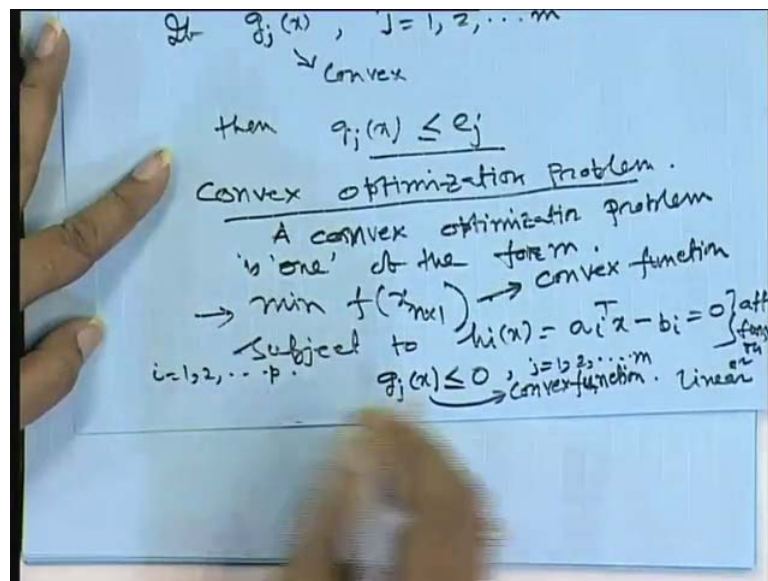 If gj(x), j = 1, 2, ... m
convex
then gj(x) ≤ ej
Convex optimization Problem.
A convex optimizatin problem
is 'one' of the form.
→ min f(x_{n×1}) → convex function
Subject to hi(x) = ai^T x - bi = 0
i = 1, 2, ... p.
gj(x) ≤ 0, j = 1, 2, ... m
→ convex function. linear